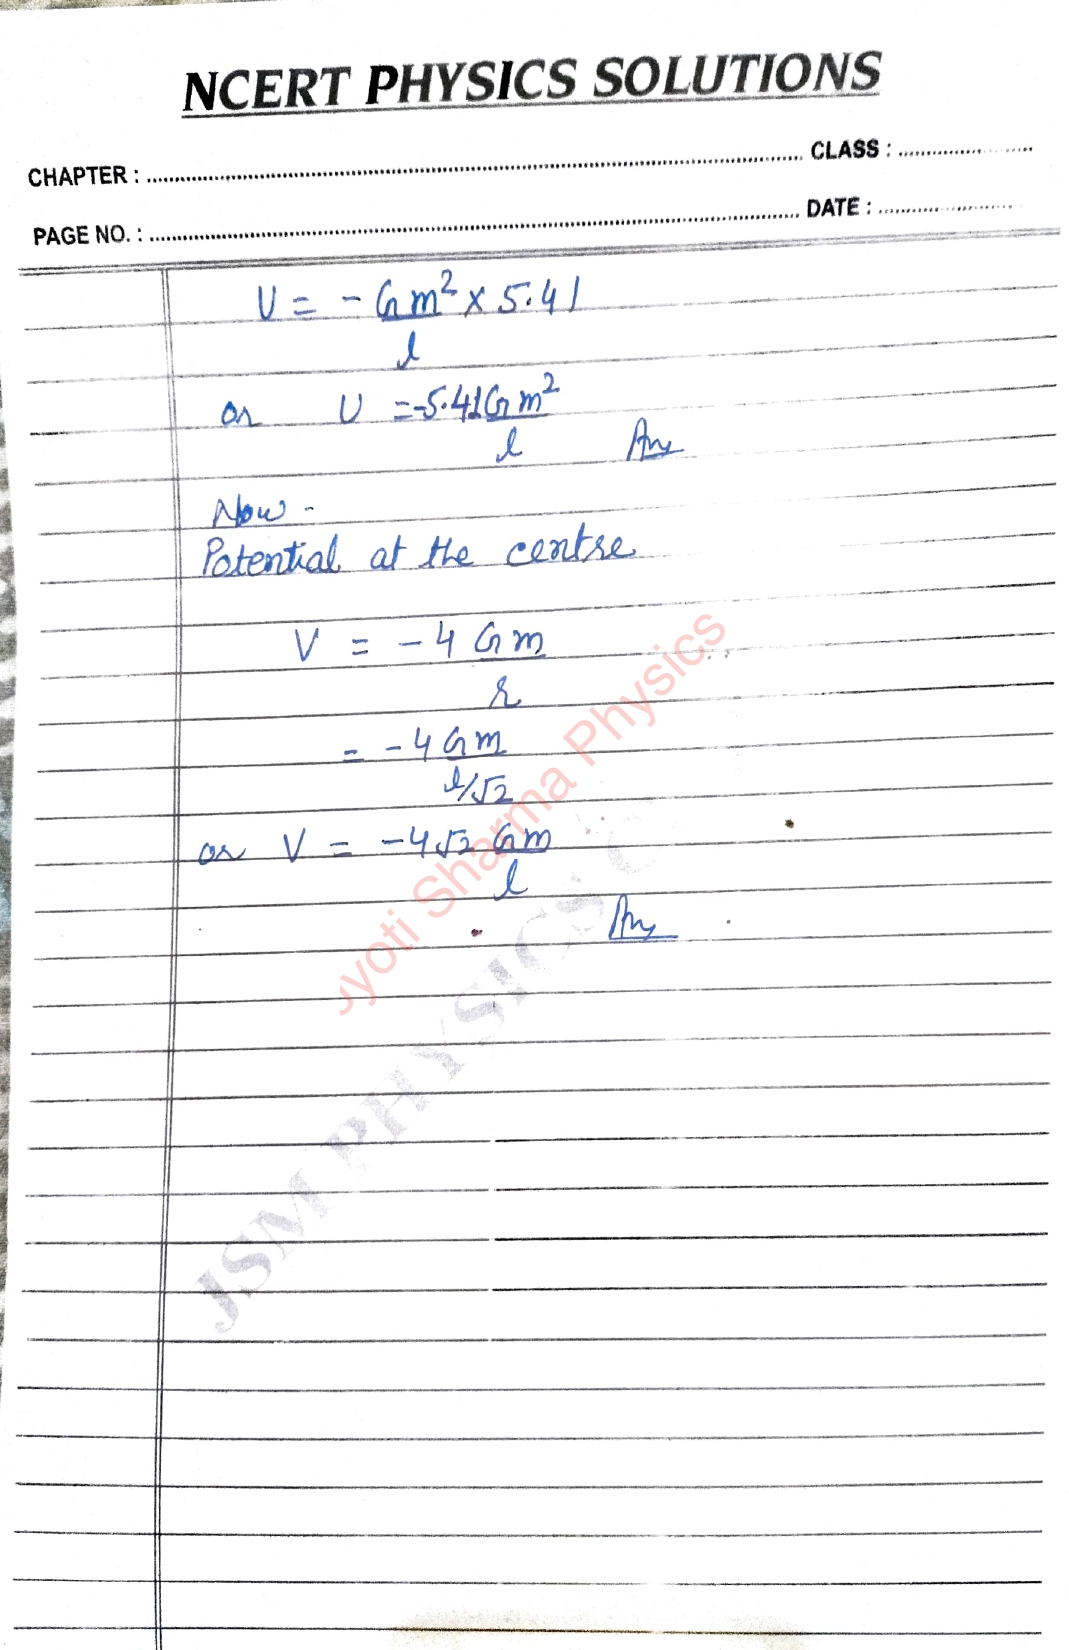 NCERT PHYSICS SOLUTIONS
CHAPTER : ........ CLASS : ........
PAGE NO. : ........ DATE : ........
U = - Gm² × 5.41
l
or U = -5.41Gm²
l Ans
Now -
Potential at the centre
V = - 4 Gm
r
= - 4 Gm
l/√2
or V = -4√2 Gm
l
Ans
Jyoti Sharma Physics
JSM PHYSICS